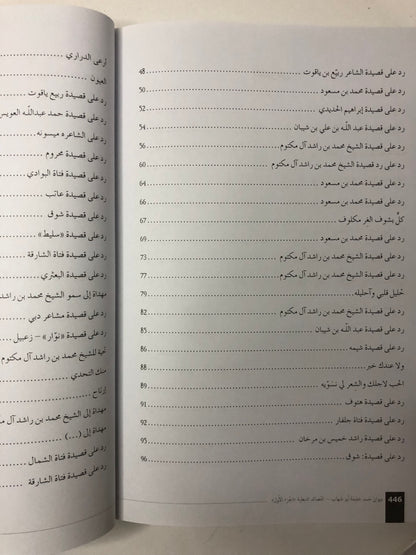 رد على قصيدة الشاعر ربيّع بن ياقوت ........ 48
رد على قصيدة محمد بن مسعود ........ 50
رد على قصيدة إبراهيم الحديدي ........ 52
رد على قصيدة عبد الله بن علي بن شيبان ........ 54
رد على قصيدة الشيخ محمد بن راشد آل مكتوم ........ 56
رد على رد قصيدة الشيخ محمد بن راشد آل مكتوم ........ 60
رد على قصيدة محمد بن مسعود ........ 64
رد على قصيدة محمد بن مسعود ........ 66
كلٍّ يشوف الغِر مكلوف ........ 67
رد على قصيدة محمد بن مسعود ........ 69
رد على قصيدة الشيخ محمد بن راشد آل مكتوم ........ 73
رد على قصيدة الشيخ محمد بن راشد آل مكتوم ........ 77
خليل قلبي وآحليله ........ 79
رد على قصيدة الشيخ محمد بن راشد آل مكتوم ........ 82
رد على قصيدة عبد الله بن شيبان ........ 85
رد على قصيدة شيمه ........ 86
ولا عندك خبر ........ 88
الحب لاجلك والشعر لي نسَوّيه ........ 89
رد على قصيدة هتوف ........ 91
رد على قصيدة فتاة جلفار ........ 94
رد على قصيدة راشد خميس بن مرخان ........ 95
رد على قصيدة: شوق ........ 96
446 ديوان حمد خليفة أبو شهاب – القصائد النبطية «الجزء الأول»
أرعى الدراري ........
العيون ........
رد على قصيدة ربيع ياقوت
رد على قصيدة حمد عبدالله العويس
رد على الشاعره ميسونه ........
رد على قصيدة محروم ........
رد على قصيدة فتاة البوادي ........
رد على قصيدة عاتب ........
رد على قصيدة شوق ........
رد على قصيدة «سليط» ........
رد على قصيدة فتاة الشارقة ........
رد على قصيدة البعثري ........
مهداة إلى سمو الشيخ محمد بن راشد
رد على قصيدة مشاعر دبي ........
رد على قصيدة «نوّار» – زعبيل ........
للشيخ محمد بن راشد آل مكتوم
منك التحدي ........
إرتاح ........
مهداة إلى الشيخ محمد بن راشد آل مكتوم
مهداة إلى (...) ........
رد على قصيدة فتاة الشمال ........
رد على قصيدة فتاة الشارقة ........